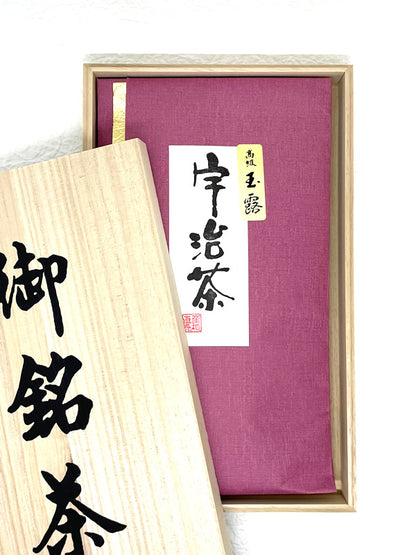 高級 玉露
宇治茶
御銘茶